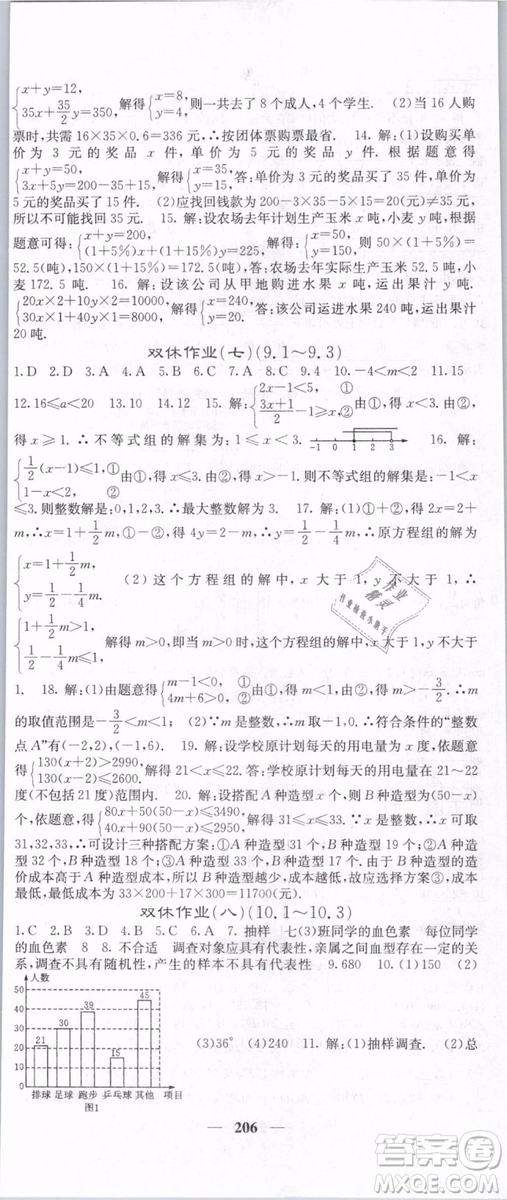 {x+y=12, 35x+35/2y=350, 解得{x=8, y=4, 则一共去了 8 个成人,4 个学生. (2)当 16 人购
票时,共需 16×35×0.6=336 元,∴按团体票购票最省. 14. 解:(1)设购买单
价为 3 元的奖品 x 件,单价为 5 元的奖品 y 件. 根据题意得
{x+y=50, 3x+5y=200-35+15, 解得{x=35, y=15, 答:单价为 3 元的奖品买了 35 件,单价为
5 元的奖品买了 15 件. (2)应找回钱款为 200-3×35-5×15=20(元)≠35 元,
所以不可能找回 35 元. 15. 解:设农场去年计划生产玉米 x 吨,小麦 y 吨,根据
题意可得:{x+y=200, (1+5%)x+(1+15%)y=225, 解得:{x=50, y=150, 则 50×(1+5%)=
52.5(吨),150×(1+15%)=172.5(吨),答:农场去年实际生产玉米 52.5 吨,小
麦 172.5 吨. 16. 解:设该公司从甲地购进水果 x 吨,运出果汁 y 吨.
{20x×2+10y×2=10000, 30x×2+20y×10=18400, 解得:{x=240, y=20. 答:该公司运进水果 240 吨,运出果汁
20 吨.
双休作业(七)(9.1～9.3)
1.D 2.D 3.A 4.A 5.B 6.C 7.B 8.C 9.4 10.-4<m<2 11.15
12.16≤a<20 13.10 14.12 15. 解:{2x-1<5, ① (3x+1)/2-1≥x, ② 由①,得 x<3. 由②,
得 x≥1. ∴不等式组的解集为:1≤x<3. -1 0 1 2 3 16. 解:
{1/2(x-1)≤1, ① 1-x<2, ② 由①,得 x≤3. 由②,得 x>-1. 则不等式组的解集是:-1<x
≤3. 则整数解是:0,1,2,3. ∴最大整数解为:3. 17. 解:(1)①+②,得 2x=2
+m,∴x=1+1/2m,①-②,得 4y=2-m,∴y=1/2-1/4m,∴原方程组的解为
{x=1+1/2m, y=1/2-1/4m. (2)这个方程组的解中,x 大于 1,y 不大于 1,∴
{1+1/2m>1, 1/2-1/4m≤1. 解得 m>0,即 m>0 时,这个方程组的解中,x 大于 1,y 不大于
1. 18. 解:(1)由题意得{m-1<0, ① 4m+6>0, ② 由①得 m<1,由②得 m>-3/2,∴m
的取值范围是-3/2<m<1; (2)∵m 是整数,∴m 取-1,0,∴符合条件的“整数
点 A”有(-2,2),(-1,6). 19. 解:设学校原计划每天的用电量为 x 度,依题意得
{130(x+2)>2990, 130(x-2)≤2600. 解得 21<x≤22. 答:学校原计划每天的用电量在 21～22
度(不包括 21 度)范围内. 20. 解:设搭配 A 种造型 x 个,B 种造型为(50-x)
个,依题意得{80x+50(50-x)≤3490, 40x+90(50-x)≤2950. 解得 31≤x≤33. ∵x 是整数,∴x 可取
31,32,33,∴可设计三种搭配方案:①A 种造型 31 个,B 种造型 19 个;②A 种造
型 32 个,B 种造型 18 个;③A 种造型 33 个,B 种造型 17 个. 由于 B 种造型的造
价成本高于 A 种造型成本. 所以 B 种造型越少,成本越低,故应选择方案③,成本
最低,最低成本为 33×200+17×300=11700(元).
双休作业(八)(10.1～10.3)
1.C 2.B 3.D 4.A 5.C 6.A 7.抽样 七(3)班同学的血色素 每位同学
的血色素 8 8.不合适 调查对象应具有代表性,亲属之间血型存在一定的关
系,调查不具有随机性,产生的样本不具有代表性 9.680 10.(1)150 (2)
人数
50
40
30
20
10
0
21 30 39 15 45
排球 足球 跑步 乒乓球 其他 项目
图1
(3)36° (4)240 11. 解:(1)抽样调查. (2)总
206
作业
精灵
答案圈